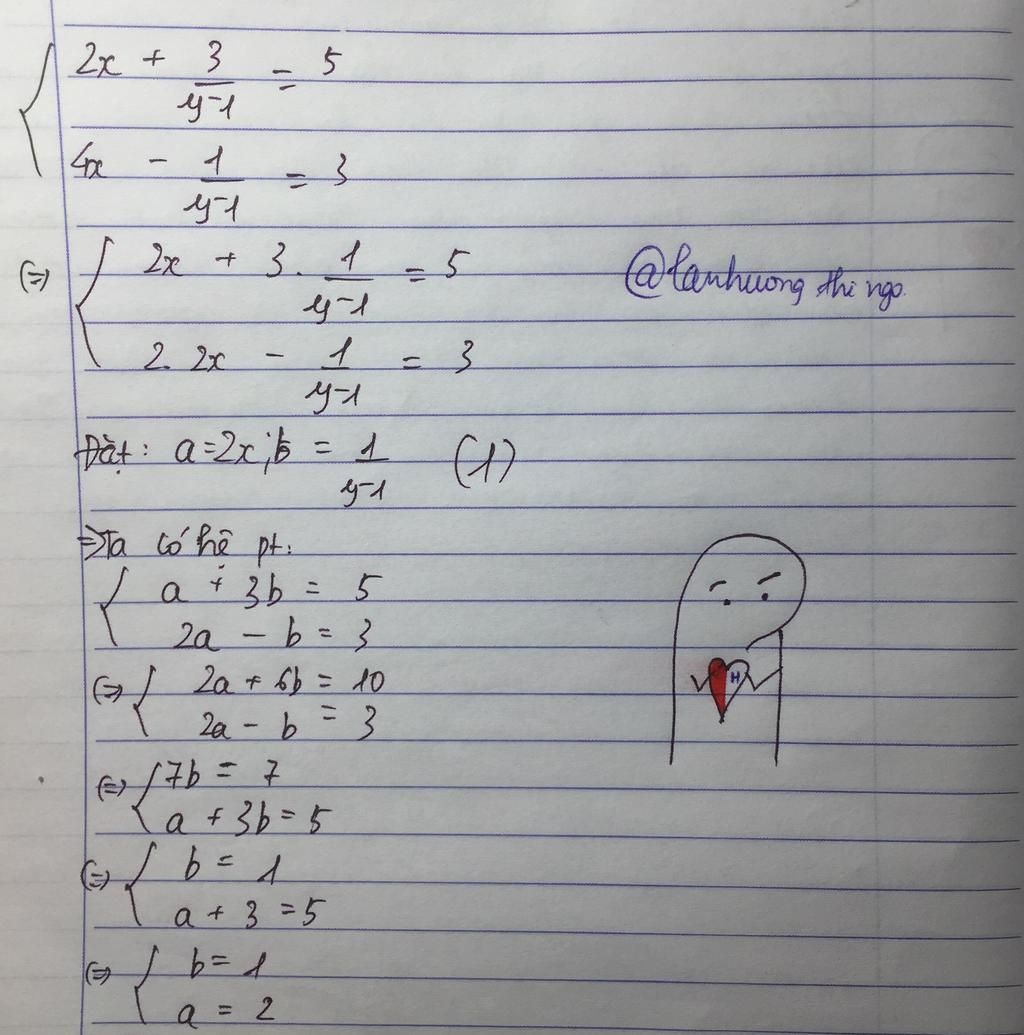 { 2x + 3/(y-1) = 5
4x - 1/(y-1) = 3
(=) { 2x + 3. 1/(y-1) = 5
2. 2x - 1/(y-1) = 3
@lanhuong thi ngo.
Đặt: a=2x; b = 1/(y-1) (1)
=> Ta có hệ pt:
{ a + 3b = 5
2a - b = 3
(=) { 2a + 6b = 10
2a - b = 3
(=) { 7b = 7
a + 3b = 5
(=) { b = 1
a + 3 = 5
(=) { b = 1
a = 2
H